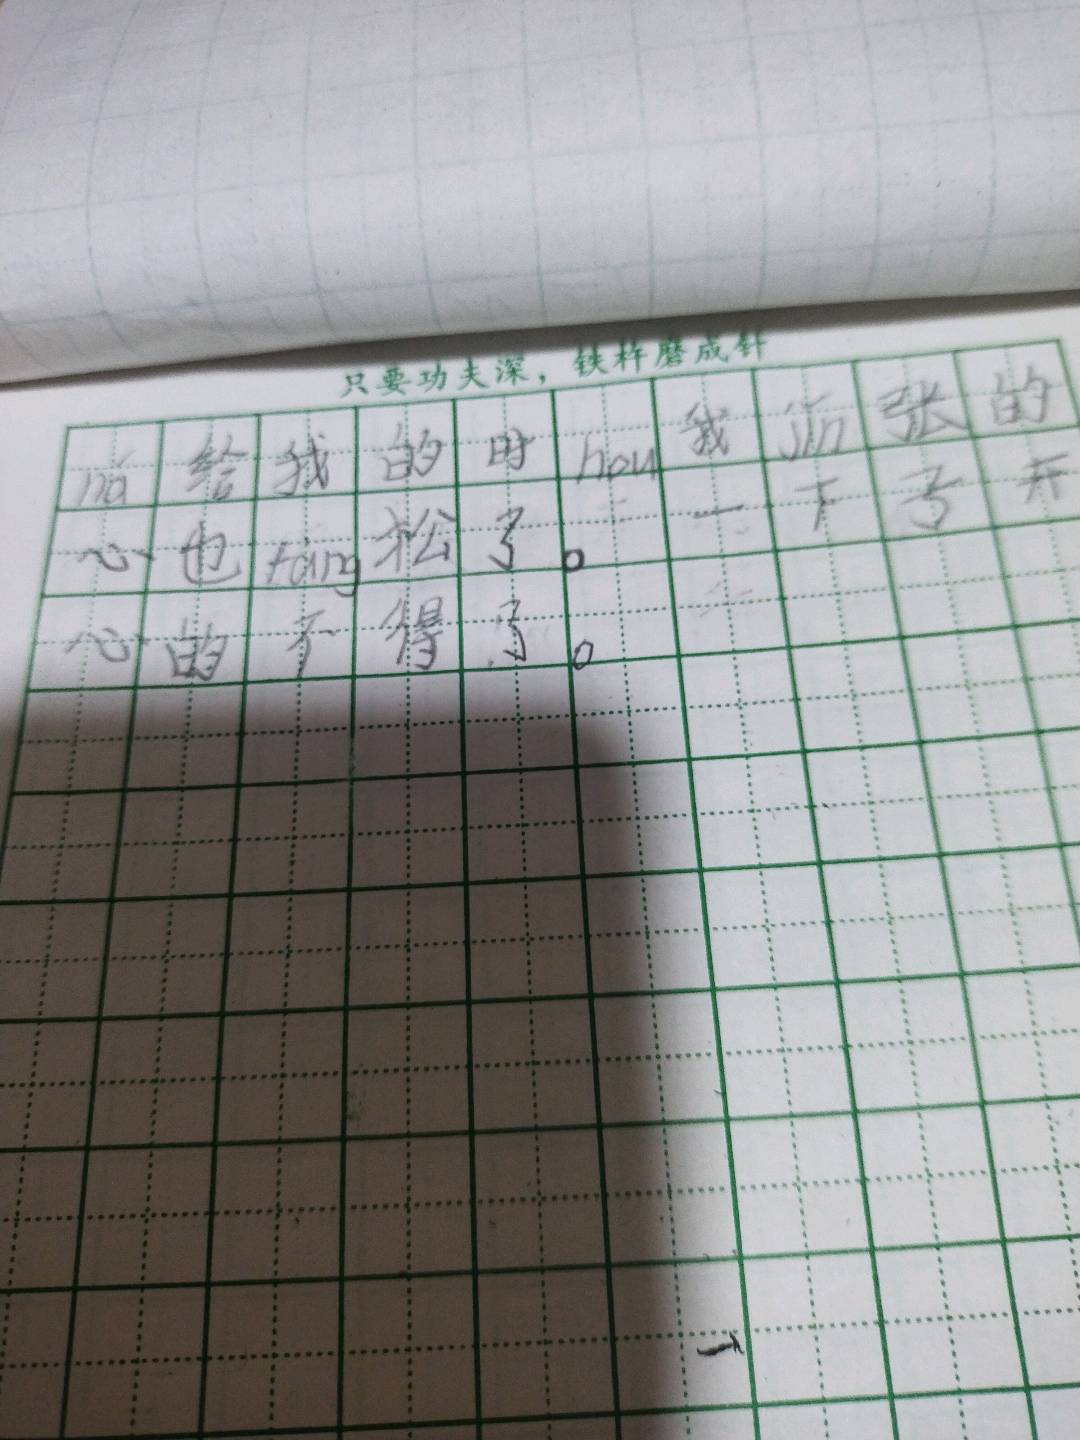 只要功夫深，铁杵磨成针
ná给我的时hou我jǐn张的
心也fàng松了。一下子开
心的不得了。